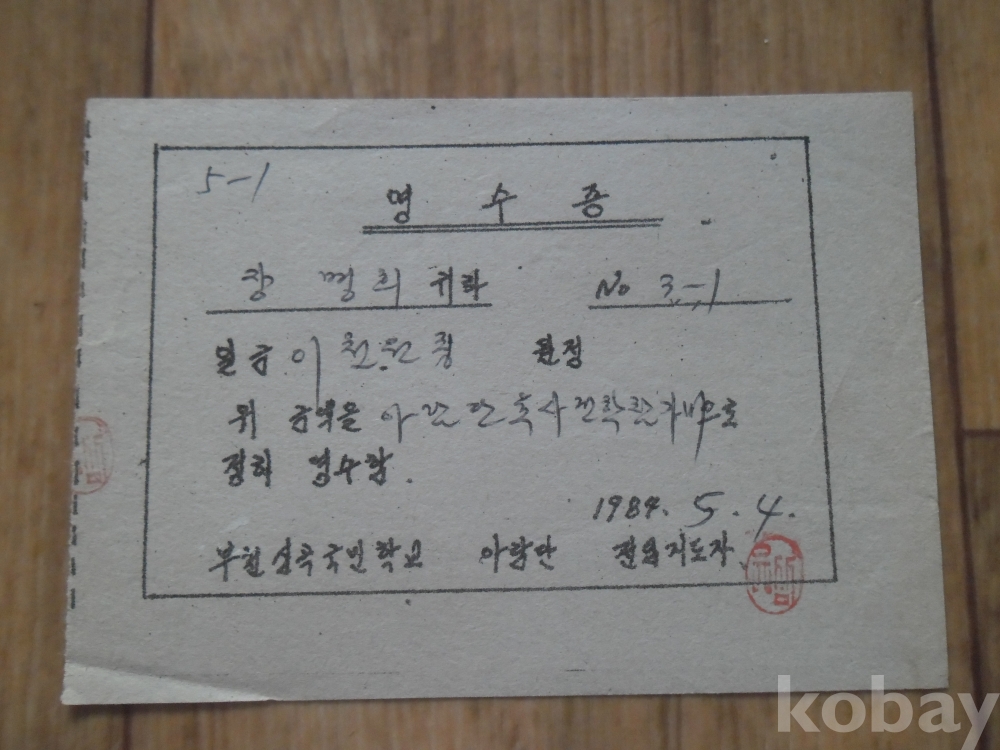 5-1
영 수 증
장 명 희 귀하 No 3-1
일금 이천원정 원정
위 금액을 아람단
정히 영수함.
1984. 5. 4.
부천심곡국민학교 아람단 전임지도자
kobay